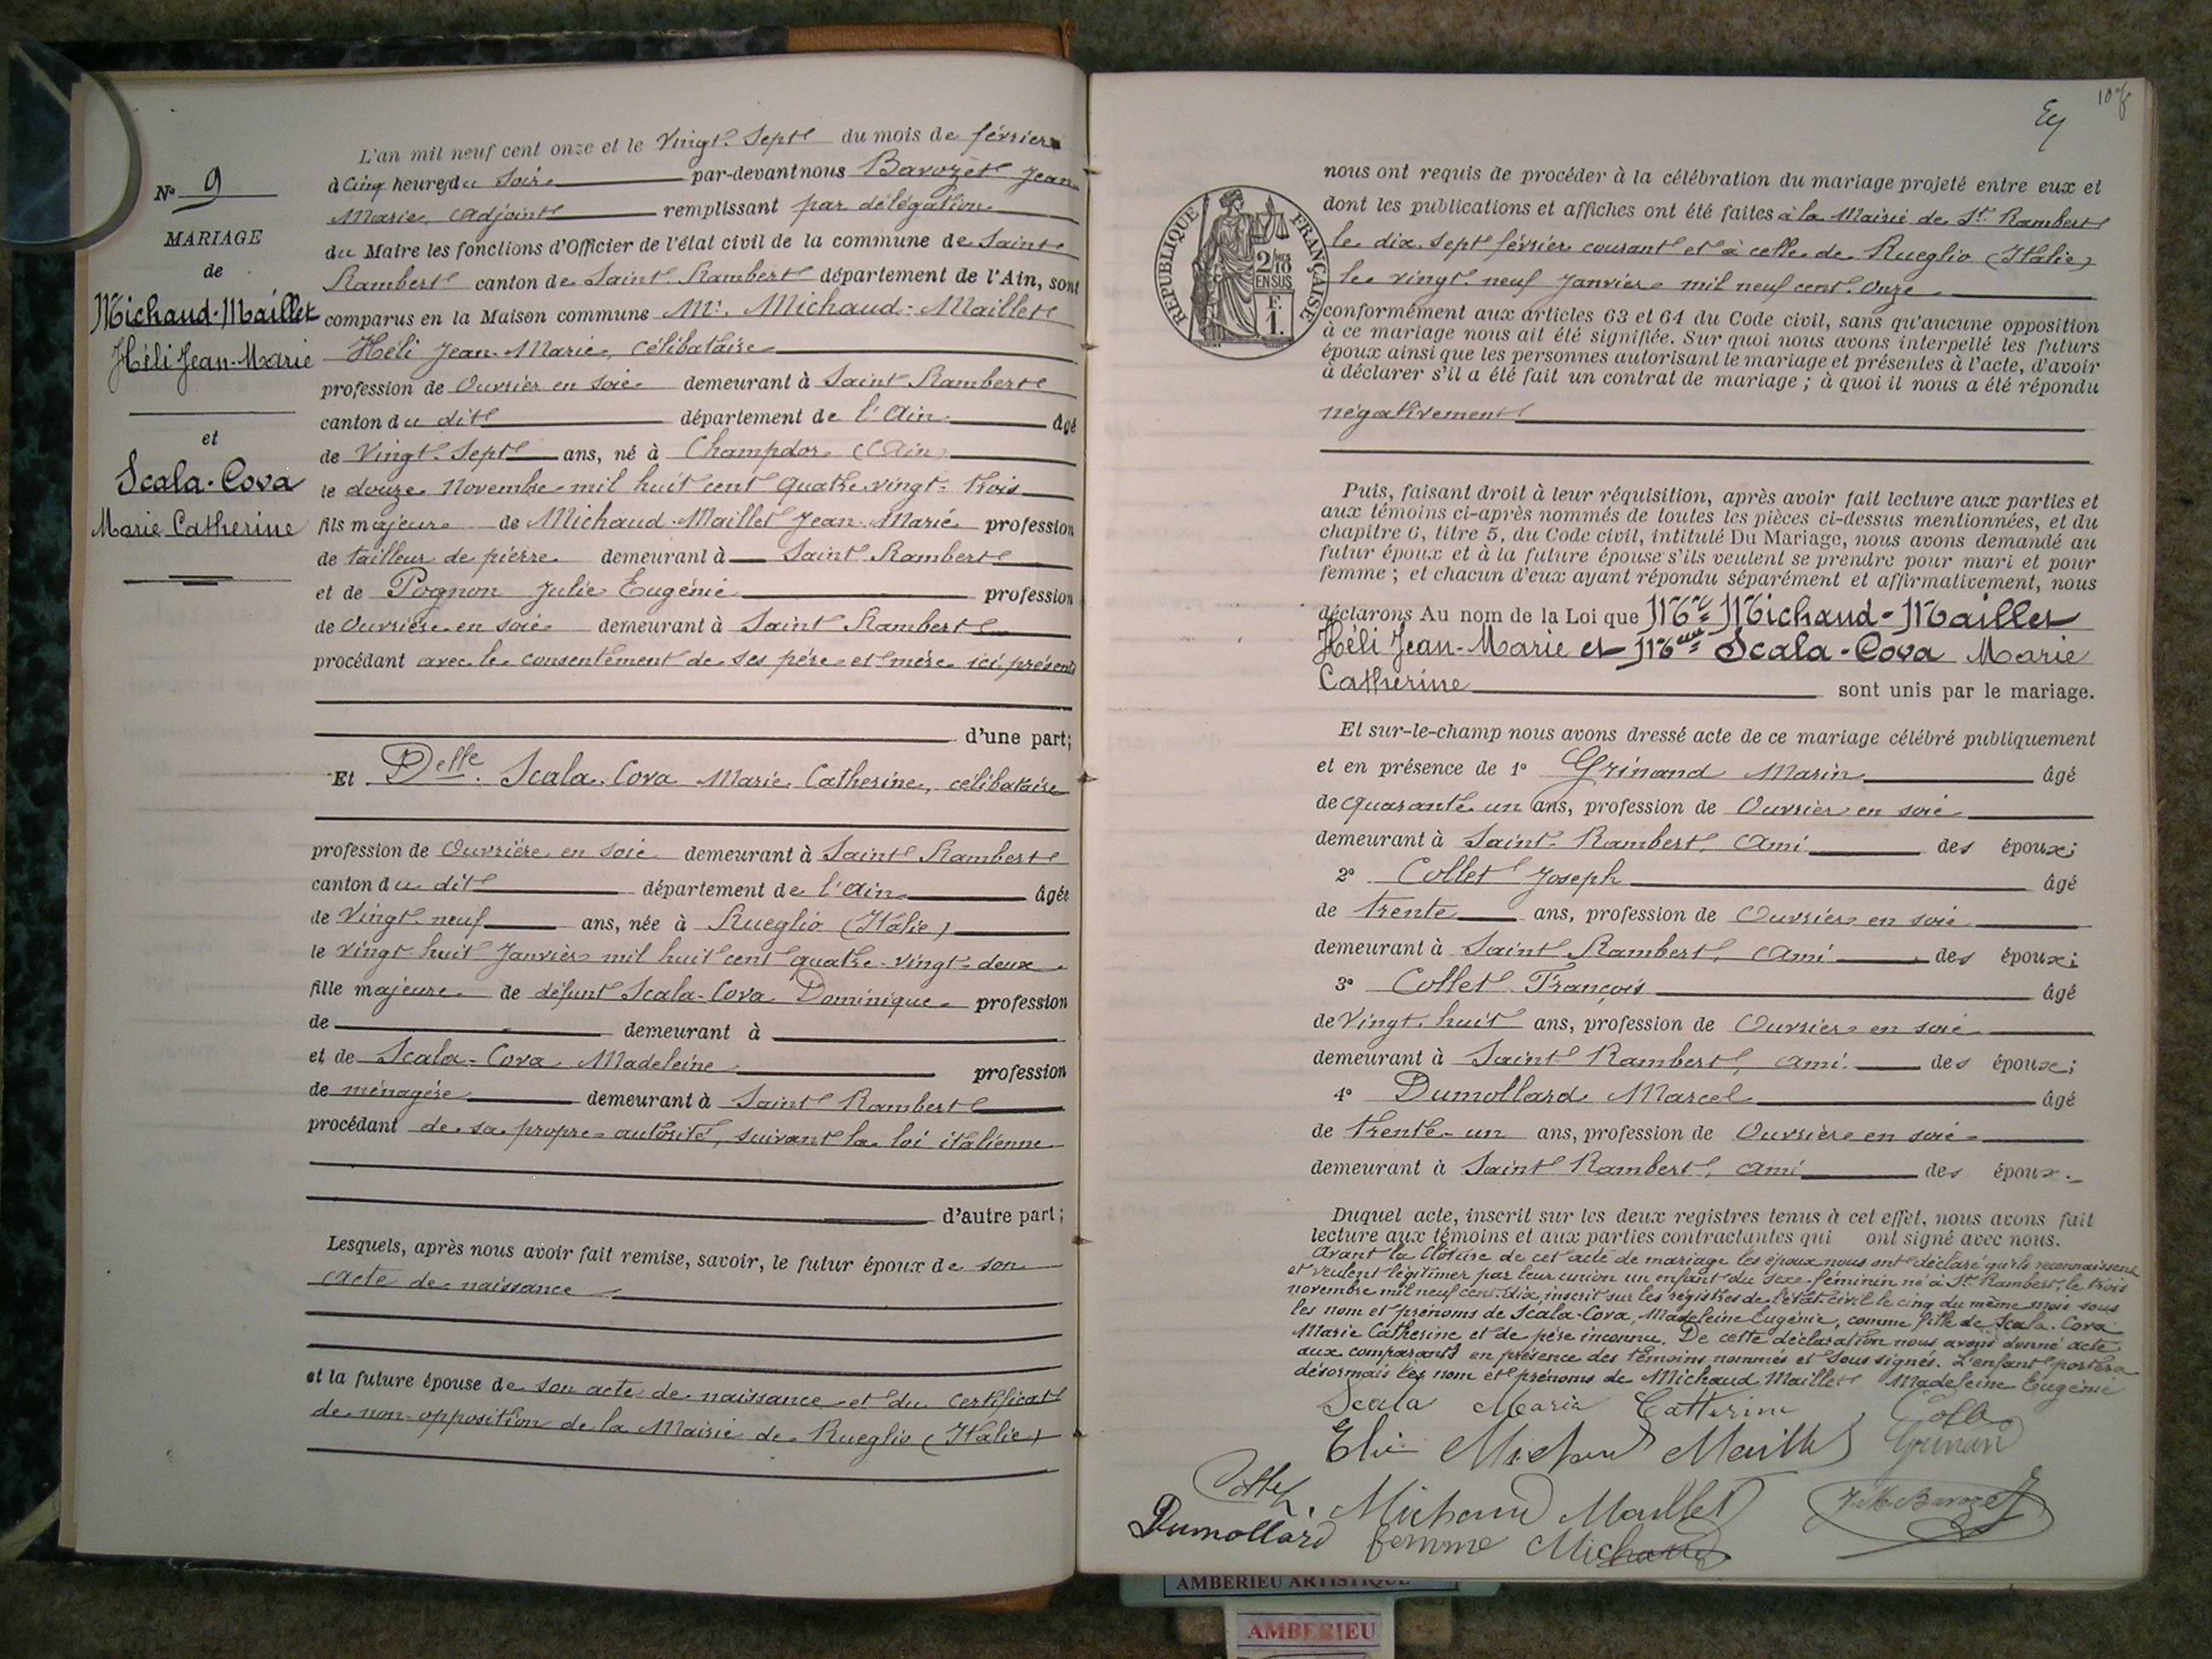 N° 9
MARIAGE
de
Michaud-Maillet
Héli Jean-Marie
et
Scala-Cova
Marie Catherine
L'an mil neuf cent onze et le vingt-sept du mois de février
à cinq heures du soir par-devant nous Barozet Jean
Marie, adjoint remplissant par délégation
du Maire les fonctions d'Officier de l'état civil de la commune de Saint
Rambert canton de Saint-Rambert département de l'Ain, sont
comparus en la Maison commune Mr. Michaud-Maillet
Héli Jean-Marie, célibataire
profession de ouvrier en soie demeurant à Saint Rambert
canton du dit département de l'Ain âgé
de vingt-sept ans, né à Champdor (Ain)
le douze novembre mil huit cent quatre-vingt-trois
fils majeur de Michaud-Maillet Jean-Marie profession
de tailleur de pierre demeurant à Saint Rambert
et de Pognon Julie Eugénie profession
de ouvrière en soie demeurant à Saint Rambert
procédant avec le consentement de ses père et mère ici présents
d'une part;
Et Delle. Scala-Cova Marie Catherine, célibataire
profession de ouvrière en soie demeurant à Saint Rambert
canton du dit département de l'Ain âgée
de vingt-neuf ans, née à Rueglio (Italie)
le vingt-huit janvier mil huit cent quatre-vingt-deux
fille majeure de défunt Scala-Cova Dominique profession
de demeurant à
et de Scala-Cova Madeleine profession
de ménagère demeurant à Saint Rambert
procédant de sa propre autorité, suivant la loi italienne
d'autre part;
Lesquels, après nous avoir fait remise, savoir, le futur époux de son
acte de naissance
et la future épouse de son acte de naissance et du certificat
de non-opposition de la Mairie de Rueglio (Italie)
RÉPUBLIQUE FRANÇAISE
2/10 EN SUS
F.
1.
nous ont requis de procéder à la célébration du mariage projeté entre eux et
dont les publications et affiches ont été faites à la Mairie de St. Rambert
le dix-sept février courant et à celle de Rueglio (Italie)
le vingt-neuf janvier mil neuf cent onze
conformément aux articles 63 et 64 du Code civil, sans qu'aucune opposition
à ce mariage nous ait été signifiée. Sur quoi nous avons interpellé les futurs
époux ainsi que les personnes autorisant le mariage et présentes à l'acte, d'avoir
à déclarer s'il a été fait un contrat de mariage ; à quoi il nous a été répondu
négativement
Puis, faisant droit à leur réquisition, après avoir fait lecture aux parties et
aux témoins ci-après nommés de toutes les pièces ci-dessus mentionnées, et du
chapitre 6, titre 5, du Code civil, intitulé Du Mariage, nous avons demandé au
futur époux et à la future épouse s'ils veulent se prendre pour mari et pour
femme ; et chacun d'eux ayant répondu séparément et affirmativement, nous
déclarons Au nom de la Loi que Mr. Michaud-Maillet
Héli Jean-Marie et Melle Scala-Cova Marie
Catherine sont unis par le mariage.
Et sur-le-champ nous avons dressé acte de ce mariage célébré publiquement
et en présence de 1° Grinand Marin âgé
de quarante-un ans, profession de ouvrier en soie
demeurant à Saint-Rambert, ami des époux;
2° Collet Joseph âgé
de trente ans, profession de ouvrier en soie
demeurant à Saint Rambert, ami des époux;
3° Collet François âgé
de vingt-huit ans, profession de ouvrier en soie
demeurant à Saint Rambert, ami des époux;
4° Dumollard Marcel âgé
de trente-un ans, profession de ouvrier en soie
demeurant à Saint Rambert, ami des époux.
Duquel acte, inscrit sur les deux registres tenus à cet effet, nous avons fait
lecture aux témoins et aux parties contractantes qui ont signé avec nous.
Avant la clôture de cet acte de mariage les époux nous ont déclaré qu'ils reconnaissent
et veulent légitimer par leur union un enfant du sexe féminin né à St. Rambert, le trois
novembre mil neuf cent-dix, inscrit sur les registres de l'état-civil le cinq du même mois sous
les nom et prénoms de Scala-Cova, Madeleine Eugénie, comme fille de Scala-Cova
Marie Catherine et de père inconnu. De cette déclaration nous avons donné acte
aux comparants en présence des témoins nommés et soussignés. L'enfant portera
désormais les nom et prénoms de Michaud Maillet Madeleine Eugénie
Scala Maria Catterina
Michaud Maillet Grinand
Collet. Michaud Maillet J. M. Barozet
Dumollard femme Michaud
AMBERIEU ARTISTIQUE
AMBERIEU